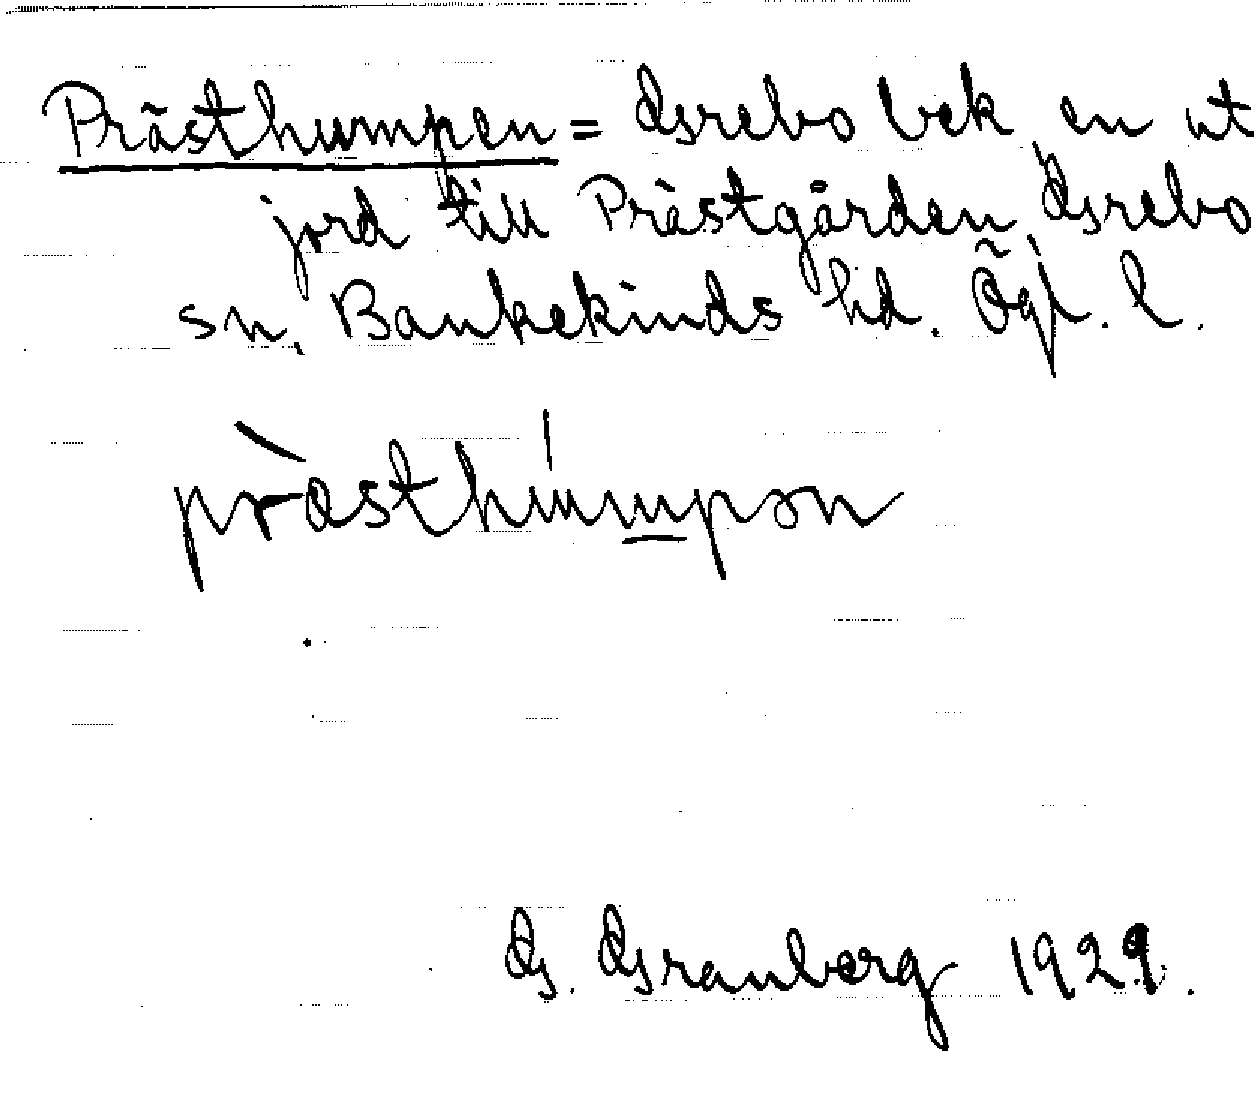 Prästhumpen = Grebo bek en ut
jord till Prästgården Grebo
sn, Bankekinds hd. Ögl. l.
pràsthúmpən
G. Granberg 1929.